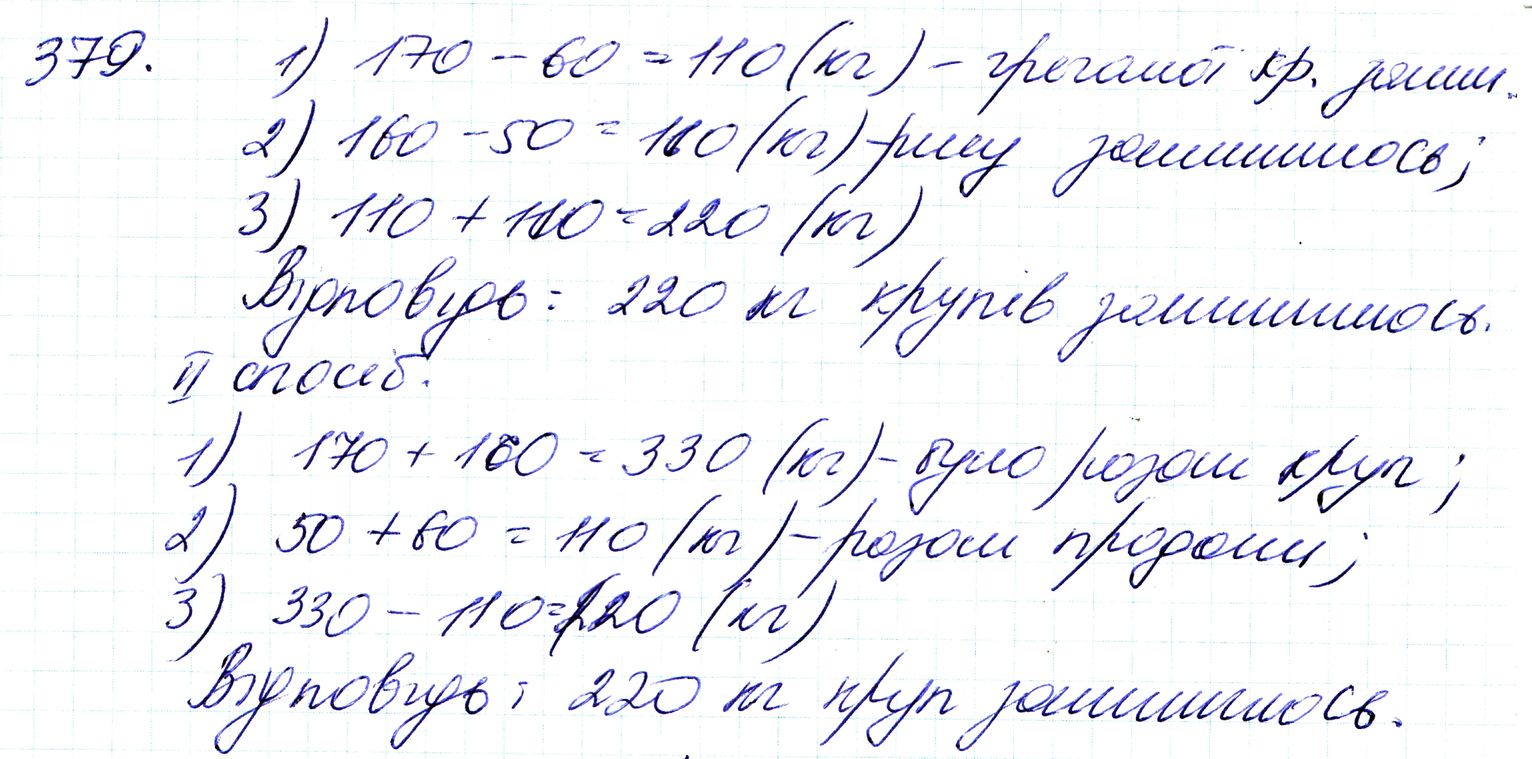 379. 1) 170 - 60 = 110 (кг) - гречаної кр. залиш.
2) 160 - 50 = 110 (кг) - рису залишилось;
3) 110 + 110 = 220 (кг)
Відповідь: 220 кг крупів залишилось.
II спосіб.
1) 170 + 160 = 330 (кг) - було разом круп;
2) 50 + 60 = 110 (кг) - разом продали;
3) 330 - 110 = 220 (кг)
Відповідь: 220 кг круп залишилось.